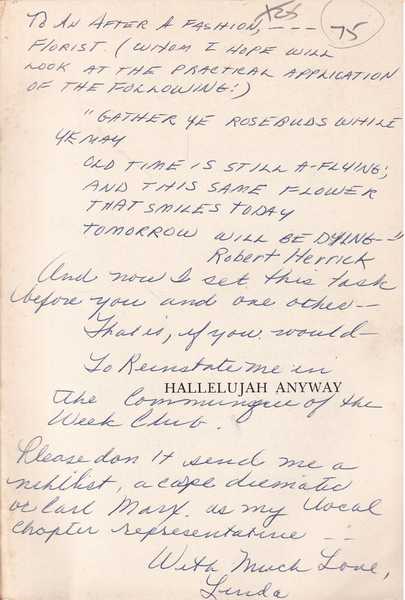 75
TO AN AFTER A FASHION, ----
FLORIST. (WHOM I HOPE WILL
LOOK AT THE PRACTICAL APPLICATION
OF THE FOLLOWING:)
"GATHER YE ROSEBUDS WHILE
YE MAY
OLD TIME IS STILL A-FLYING;
AND THIS SAME FLOWER
THAT SMILES TODAY
TOMORROW WILL BE DYING--"
Robert Herrick
And now I set this task
before you and one other--
That is, if you would--
To Reinstate me in
HALLELUJAH ANYWAY
the Communique of the
Week Club.
Please don't send me a
nihilist, a carpe diematic
or Carl Marx as my local
chapter representative --
With Much Love,
Linda